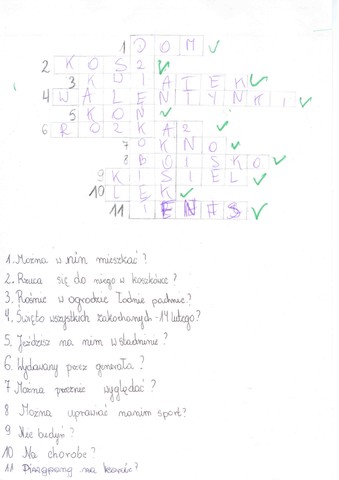 1 DOM
2 KOSZ
3 KWIATEK
4 WALENTYNKI
5 KOŃ
6 ROZKAZ
7 OKNO
8 BOISKO
9 KISIEL
10 LEK
11 TENIS
1. Można w nin mieszkać?
2. Rzuca się do niego w koszkówce?
3. Rośnie w ogrodzie ładnie pachnie?
4. Święto wszystkich zakochanych - 14 lutego?
5. Jeździsz na nim w stadninie?
6. Wydawany przez generała?
7 Można przeznie wyglądać?
8 Mozna uprawiać nanim sport?
9 Nie budyń?
10 Na chorobe?
11 Pingpong na korcie?